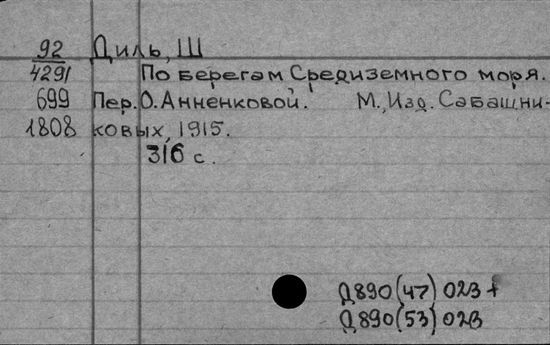 92 Диль, Ш
4291 По берегам Средиземного моря.
699 Пер. О. Анненковой. М., Изд. Сабашни-
1808 ковых, 1915.
316 с.
Д890(47) 023 +
Д890(53) 023